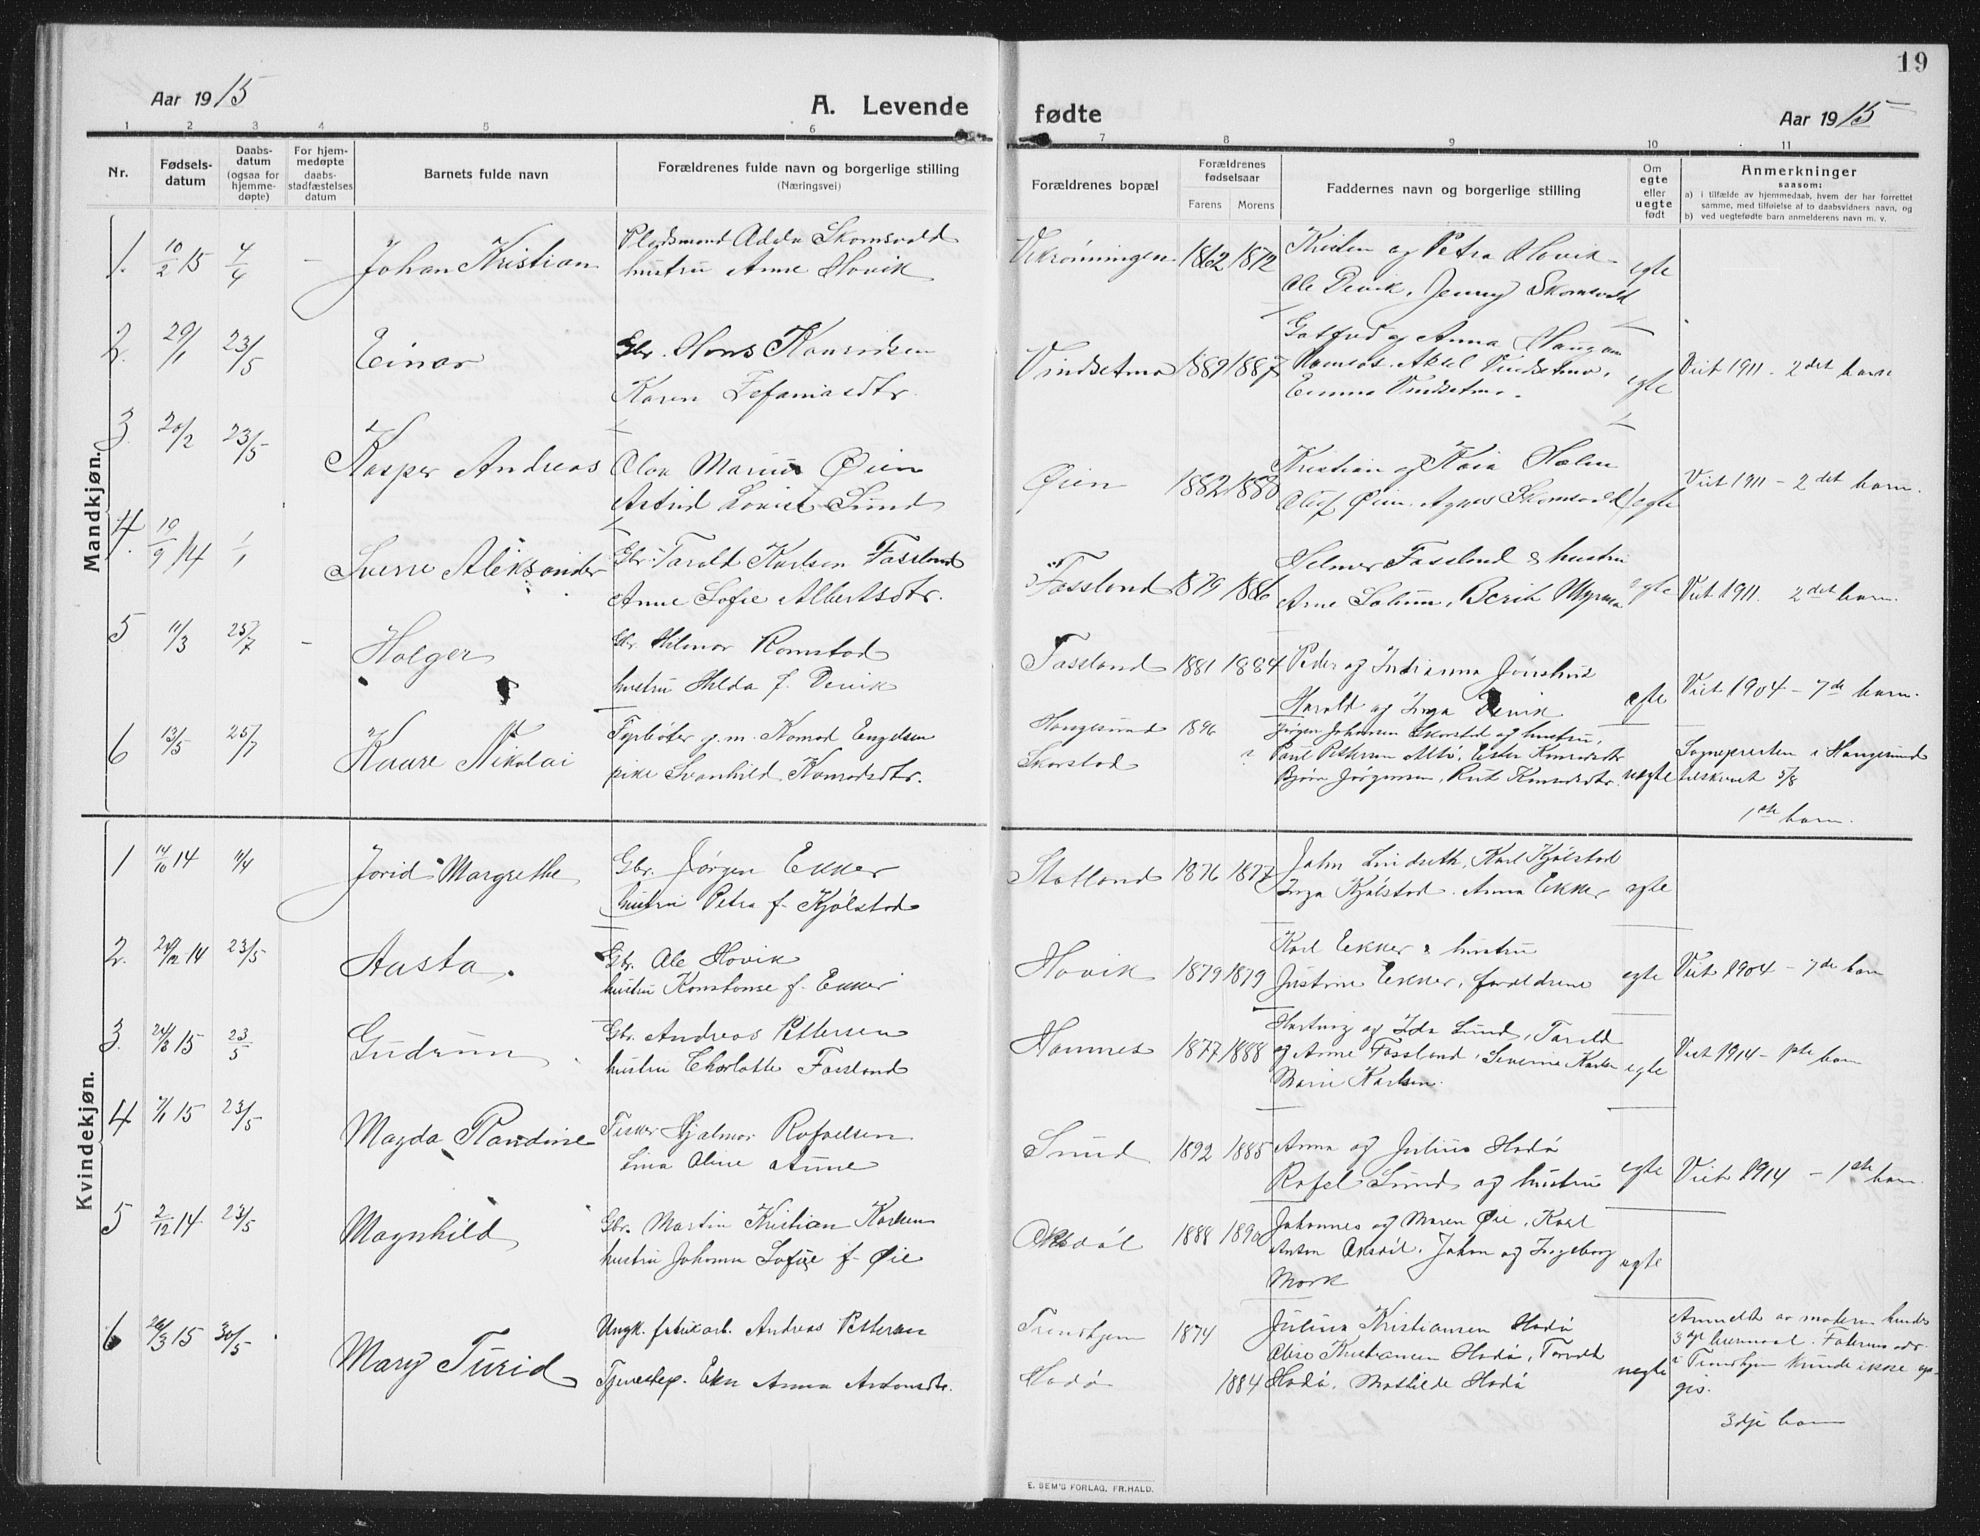 19
Aar 1915
A. Levende fødte
Aar 1915
1 2 3 4 5 6 7 8 9 10 11
Nr.
Fødsels-
datum
Daabs-
datum
(ogsaa for
hjemme-
døpte)
For hjem-
medøpte
daabs-
stadfæstelses
datum
Barnets fulde navn
Forældrenes fulde navn og borgerlige stilling
(Næringsvei)
Forældrenes bopæl
Forældrenes
fødselsaar
Farens Morens
Faddernes navn og borgerlige stilling
Om
egte
eller
uegte
født
Anmerkninger
saasom:
a) i tilfælde av hjemmedaab, hvem der har forrettet
samme, med tilføielse af to daabsvidners navn, og
b) ved uegtefødte barn anmelderens navn m. v.
Mandkjøn.
1. 10/2 15 4/4 - Johan Kristian
Pladsmand Adda Skomsvold
hustru Anne Hovik
Vikrønningen 1862 1872
Kristen og Petra Hovik
Ole Devik, Jenny Skomsvold
egte
2. 29/1 23/5 Einar
Gbr. Hans Konradsen
Karen Zefaniasdtr.
Vindsetmo 1889 1887
Gotfred og Anna Haugan
Namsos. Aksel Vindsetmo,
Emma Vindsetmo.
egte
Viet 1911 - 2det barn
3 20/2 23/5 Kasper Andreas
Olav Marius Øien
Astrid Lovise Lund
Øien 1882 1880
Kristian og Kaia Holm
Olaf Øien. Agnes Skomsvold
egte
Viet 1911 - 2det barn.
4. 19/9 14 1/1 Sverre Aleksander
Gbr. Tarald Karlsen Fossland
Anne Sofie Albertsdtr.
Fossland 1879 1886
Selmer Fossland & hustru
Arne Solum, Berit Myrmo
egte
Viet 1911. 2det barn.
5 11/3 25/7 - Holger
Gbr Hilmar Romstad
hustru Hilda f. Devik
Fossland 1881 1884
Peder og Indianna Jonshus
Harald og Inga Devik
egte
Viet 1904 - 7de barn.
6 13/5 25/7 Kaare Nikolai
Fyrbøter g. m. Konrad Engelsen
pike Svanhild Konradsdtr.
Haugesund 1896
Skorstad ?
Jørgen Johansen Skorstad og hustru,
Paul Pettersen Altø, Ester Konradsdtr
Bjørn Jørgensen, Rut Konradsdtr.
uegte
Sognepresten i Haugesund
tilskrevet 5/8
1ste barn.
Kvindekjøn.
1 14/10 14 11/4 Jorid Margrethe
Gbr. Jørgen Ekker
hustru Petra f. Kjølstad
Statland 1876 1877
John Lindseth, Karl Kjølstad
Inga Kjølstad. Anna Ekker
egte
2. 29/12 14 23/5 Aasta
Gbr. Ole Hovik
hustru Konstanse f. Ekker
Hovik 1879 1879
Karl Ekker & hustru
Justine Ekker, forældrene
egte
Viet 1904 - 7de barn
3. 15 23/5 Gudrun
Gbr. Andreas Pettersen
hustru Charlotte Fossland
Hamnes 1877 1888
Hartvig og Ida Lund, Tarald
og Anne Fossland, Severine Karlsen
Marie Karlsen.
egte
Viet 1914 - 1ste barn
4 7/1 15 23/5 Magda Blandine
Fisker Hjalmar Rafaelsen
Lina Oline Aune
Lund 1892 1885
Anna og Julius Hodø
Rafel Lund og hustru
egte
Viet 1914 - 1ste barn.
5 2/12 14. 23/5 Magnhild
Gbr. Martin Kristian Karlsen
hustru Johanna Sofie f. Øie
Oksdøl 1888 1890
Johannes og Maren Øie, Karl
Anton Oksdøl. Johan og Ingeborg
Mork
egte
6 26/3 15 30/5 Mary Turid
Ungk. fabrikarb. Andreas Pettersen
Tjenestep. Anna Antonsdtr.
Trondhjem 1874
Hodø 1884
Julius Kristiansen Hodø
Olise Kristiansen Hodø, Torvald
Hodø, Mathilde Hodø
uegte
Anmeldt av moderen hendes
3dje leiermaal. Faderens adr.
i Trondhjem kunde ikke op-
gis.
3dje barn
E. SEM'S FORLAG, FR.HALD.